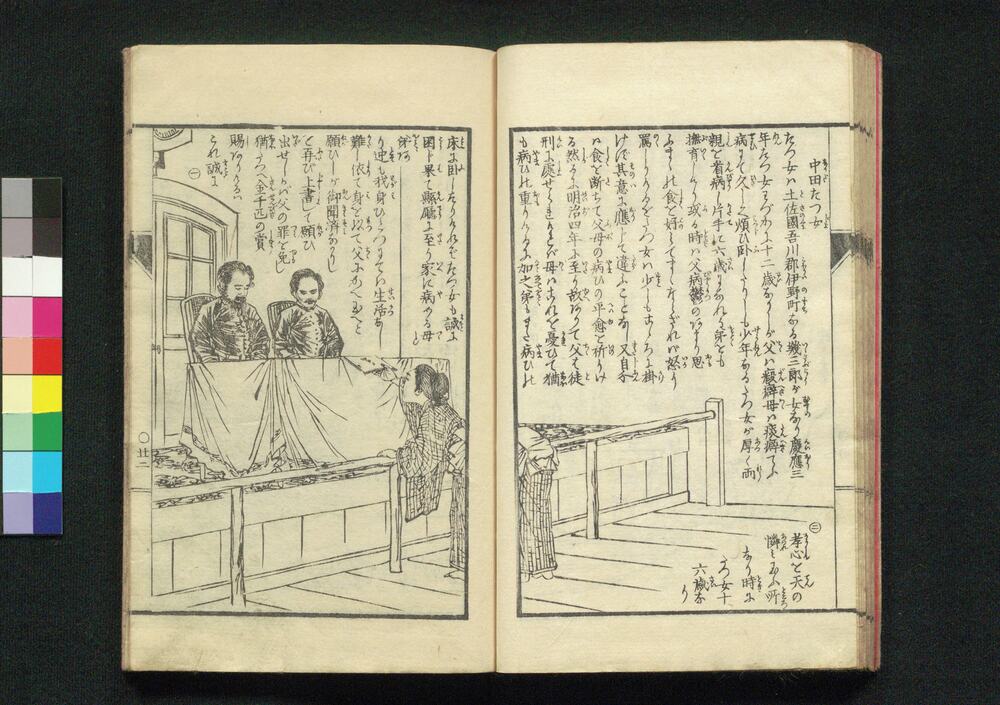 中田たつ女
たつ女ハ土佐國吾川郡伊野町なる幾三郎が女なり慶應三
年たつ女わづかに十二歳なりしが父ハ癈癖母ハ痰癖てふ
病にて久しく煩ひ臥しよりも少年なるたつ女が厚く両
親を看病し片手に六歳になれる弟をも
撫育しけり或る時ハ父病鬱のあまり思
ふまゝの食を好してすしなどなければ怒り
罵しりけるをたつ女ハ少しもこゝろに掛
けず其意に應じて違ふことなく又自ら
ハ食を断ちて父母の病ひの平愈を祈りけ
る然るに明治四年に至り故ありて父ハ徒
刑に處せられしかバ母ハこれを憂ひて猶
も病ひの重りけるに加之弟もまた病ひの
㊁
孝心を天の
憐みたまふ所
なり時に
たつ女十
六歳なり
床に臥しけれバたつ女も誠に
困じ果て縣廳に至り家に病める母
弟あり
迚も我身ひとつにてハ生活なし
難し依て身を以て父にかへんと
願ひしが御聞済なかりし
を再び上書して願ひ
出せしかバ父の罪を免し
猶たつへ金千匹の賞
賜ありけるハ
これ誠に
㊀
〇廿二